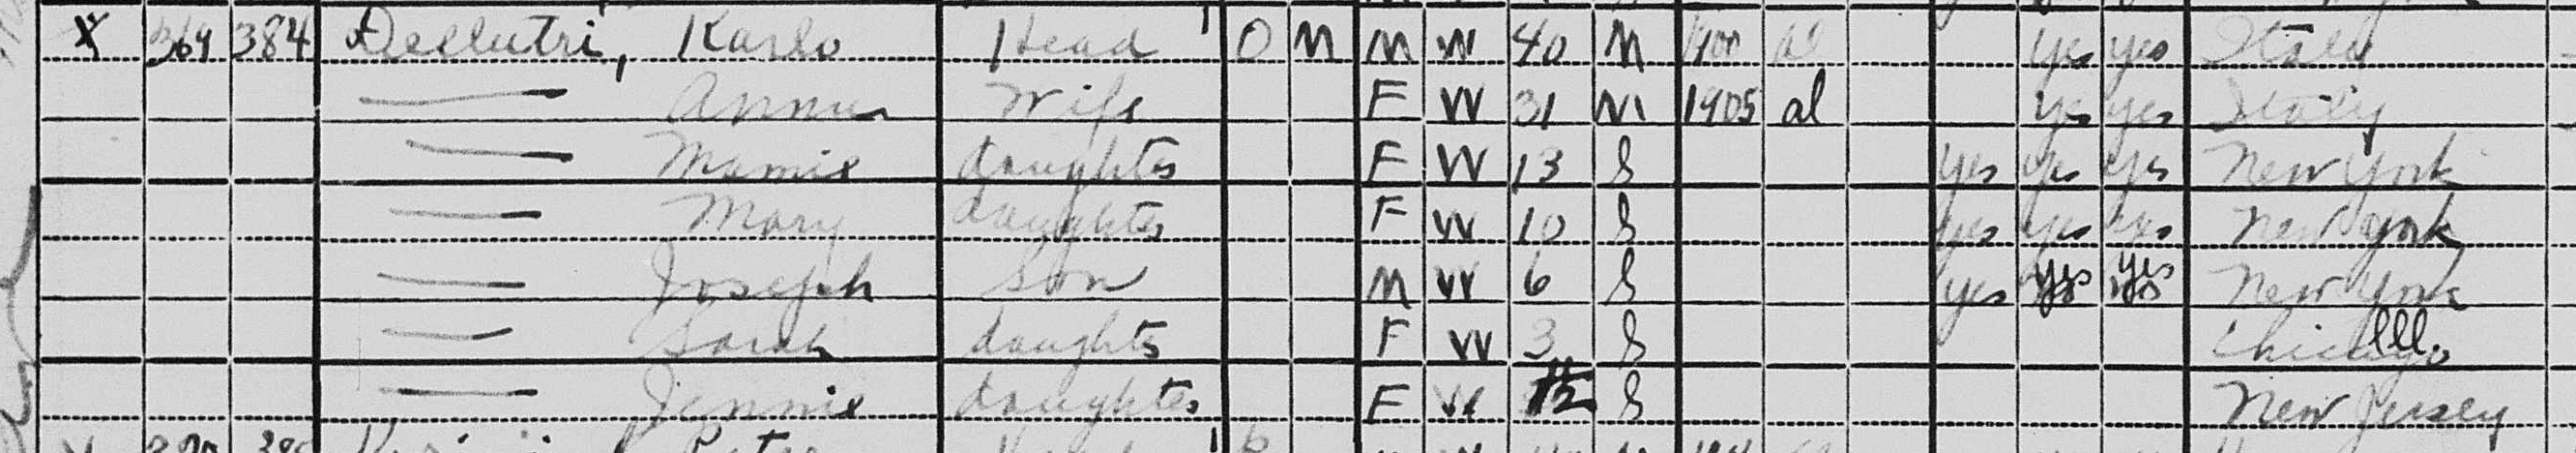 X 369 384 Dellutri, Karlo Head 1 O M M W 40 M 1900 al yes yes Italy
Annie Wife F W 31 M 1905 al yes yes Italy
Mamie daughter F W 13 S yes yes yes New York
Mary daughter F W 10 S yes yes yes New York
Joseph Son M W 6 S yes yes yes New York
Sarah daughter F W 3 S Chicago Ill.
Jennie daughter F W S New Jersey
Peter Head 1